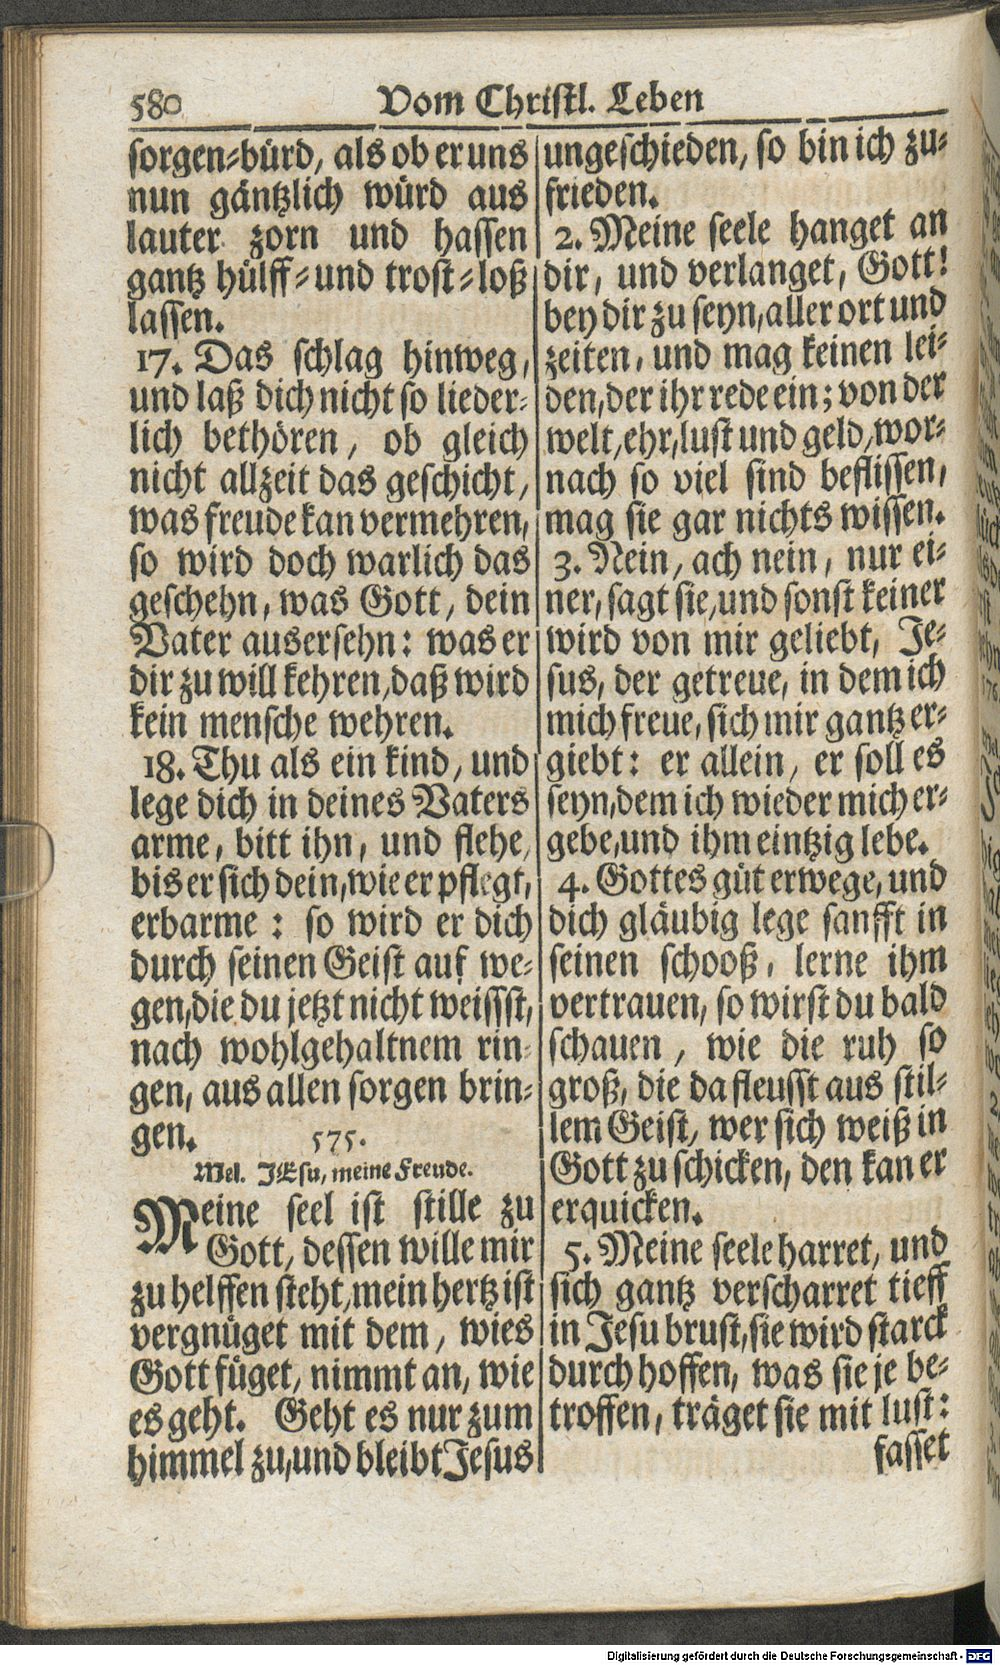 580 Vom Christl. Leben
sorgen-bürd, als ob er uns
nun gäntzlich würd aus
lauter zorn und hassen
gantz hülff- und trost-loß
lassen.
17. Das schlag hinweg,
und laß dich nicht so lieder-
lich bethören, ob gleich
nicht allzeit das geschicht,
was freude kan vermehren,
so wird doch warlich das
geschehn, was Gott, dein
Vater ausersehn: was er
dir zu will kehren, daß wird
kein mensche wehren.
18. Thu als ein kind, und
lege dich in deines Vaters
arme, bitt ihn, und flehe,
bis er sich dein, wie er pflegt,
erbarme: so wird er dich
durch seinen Geist auf we-
gen, die du jetzt nicht weissst,
nach wohlgehaltnem rin-
gen, aus allen sorgen brin-
gen.
575.
Mel. JEsu, meine Freude.
Meine seel ist stille zu
Gott, dessen wille mir
zu helffen steht, mein hertz ist
vergnüget mit dem, wies
Gott füget, nimmt an, wie
es geht. Geht es nur zum
himmel zu, und bleibt Jesus
ungeschieden, so bin ich zu-
frieden.
2. Meine seele hanget an
dir, und verlanget, Gott!
bey dir zu seyn, aller ort und
zeiten, und mag keinen lei-
den, der ihr rede ein; von der
welt, ehr, lust und geld, wor-
nach so viel sind beflissen,
mag sie gar nichts wissen.
3. Nein, ach nein, nur ei-
ner, sagt sie, und sonst keiner
wird von mir geliebt, Je-
sus, der getreue, in dem ich
mich freue, sich mir gantz er-
giebt: er allein, er soll es
seyn, dem ich wieder mich er-
gebe, und ihm eintzig lebe.
4. Gottes güt erwege, und
dich gläubig lege sanfft in
seinen schooß, lerne ihm
vertrauen, so wirst du bald
schauen, wie die ruh so
groß, die da fleusst aus stil-
lem Geist, wer sich weiß in
Gott zu schicken, den kan er
erquicken.
5. Meine seele harret, und
sich gantz verscharret tieff
in Jesu brust, sie wird starck
durch hoffen, was sie je be-
troffen, träget sie mit lust:
fasset
Digitalisierung gefördert durch die Deutsche Forschungsgemeinschaft - DFG